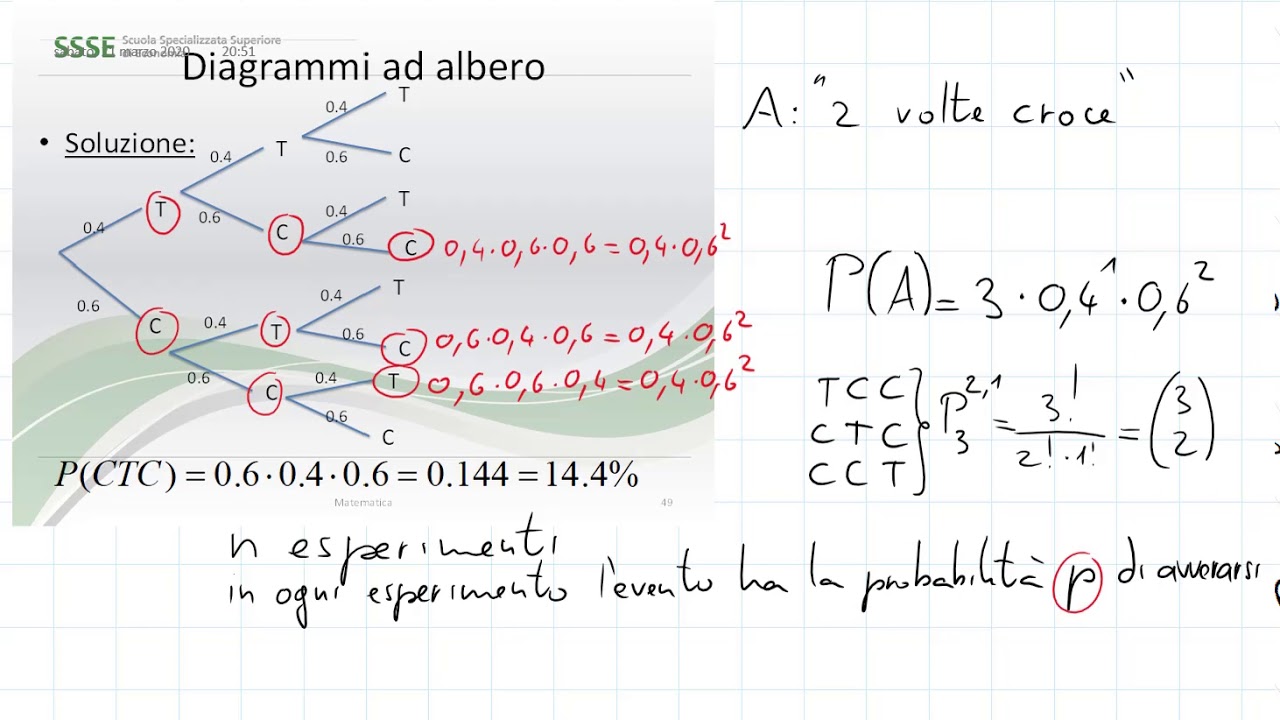 SSSE Scuola Specializzata Superiore
di Economia
marzo 2020 20:51
Diagrammi ad albero
• Soluzione:
0.4 T
0.4 T
0.6 C
0.4 T
0.6 C
0.4 T
0.6 C 0,4·0,6·0,6 = 0,4·0,6²
0.6 C
0.4 T
0.4 T
0.6 C 0,6·0,4·0,6 = 0,4·0,6²
0.6 C
0.4 T 0,6·0,6·0,4 = 0,4·0,6²
0.6 C
P(CTC) = 0.6·0.4·0.6 = 0.144 = 14.4%
Matematica 49
A: "2 volte croce"
P(A) = 3 · 0,4¹ · 0,6²
TCC
CTC
CCT
P₃²,¹ = 3! / 2!·1! = (3 2)
n esperimenti
in ogni esperimento l'evento ha la probabilità p di avverarsi